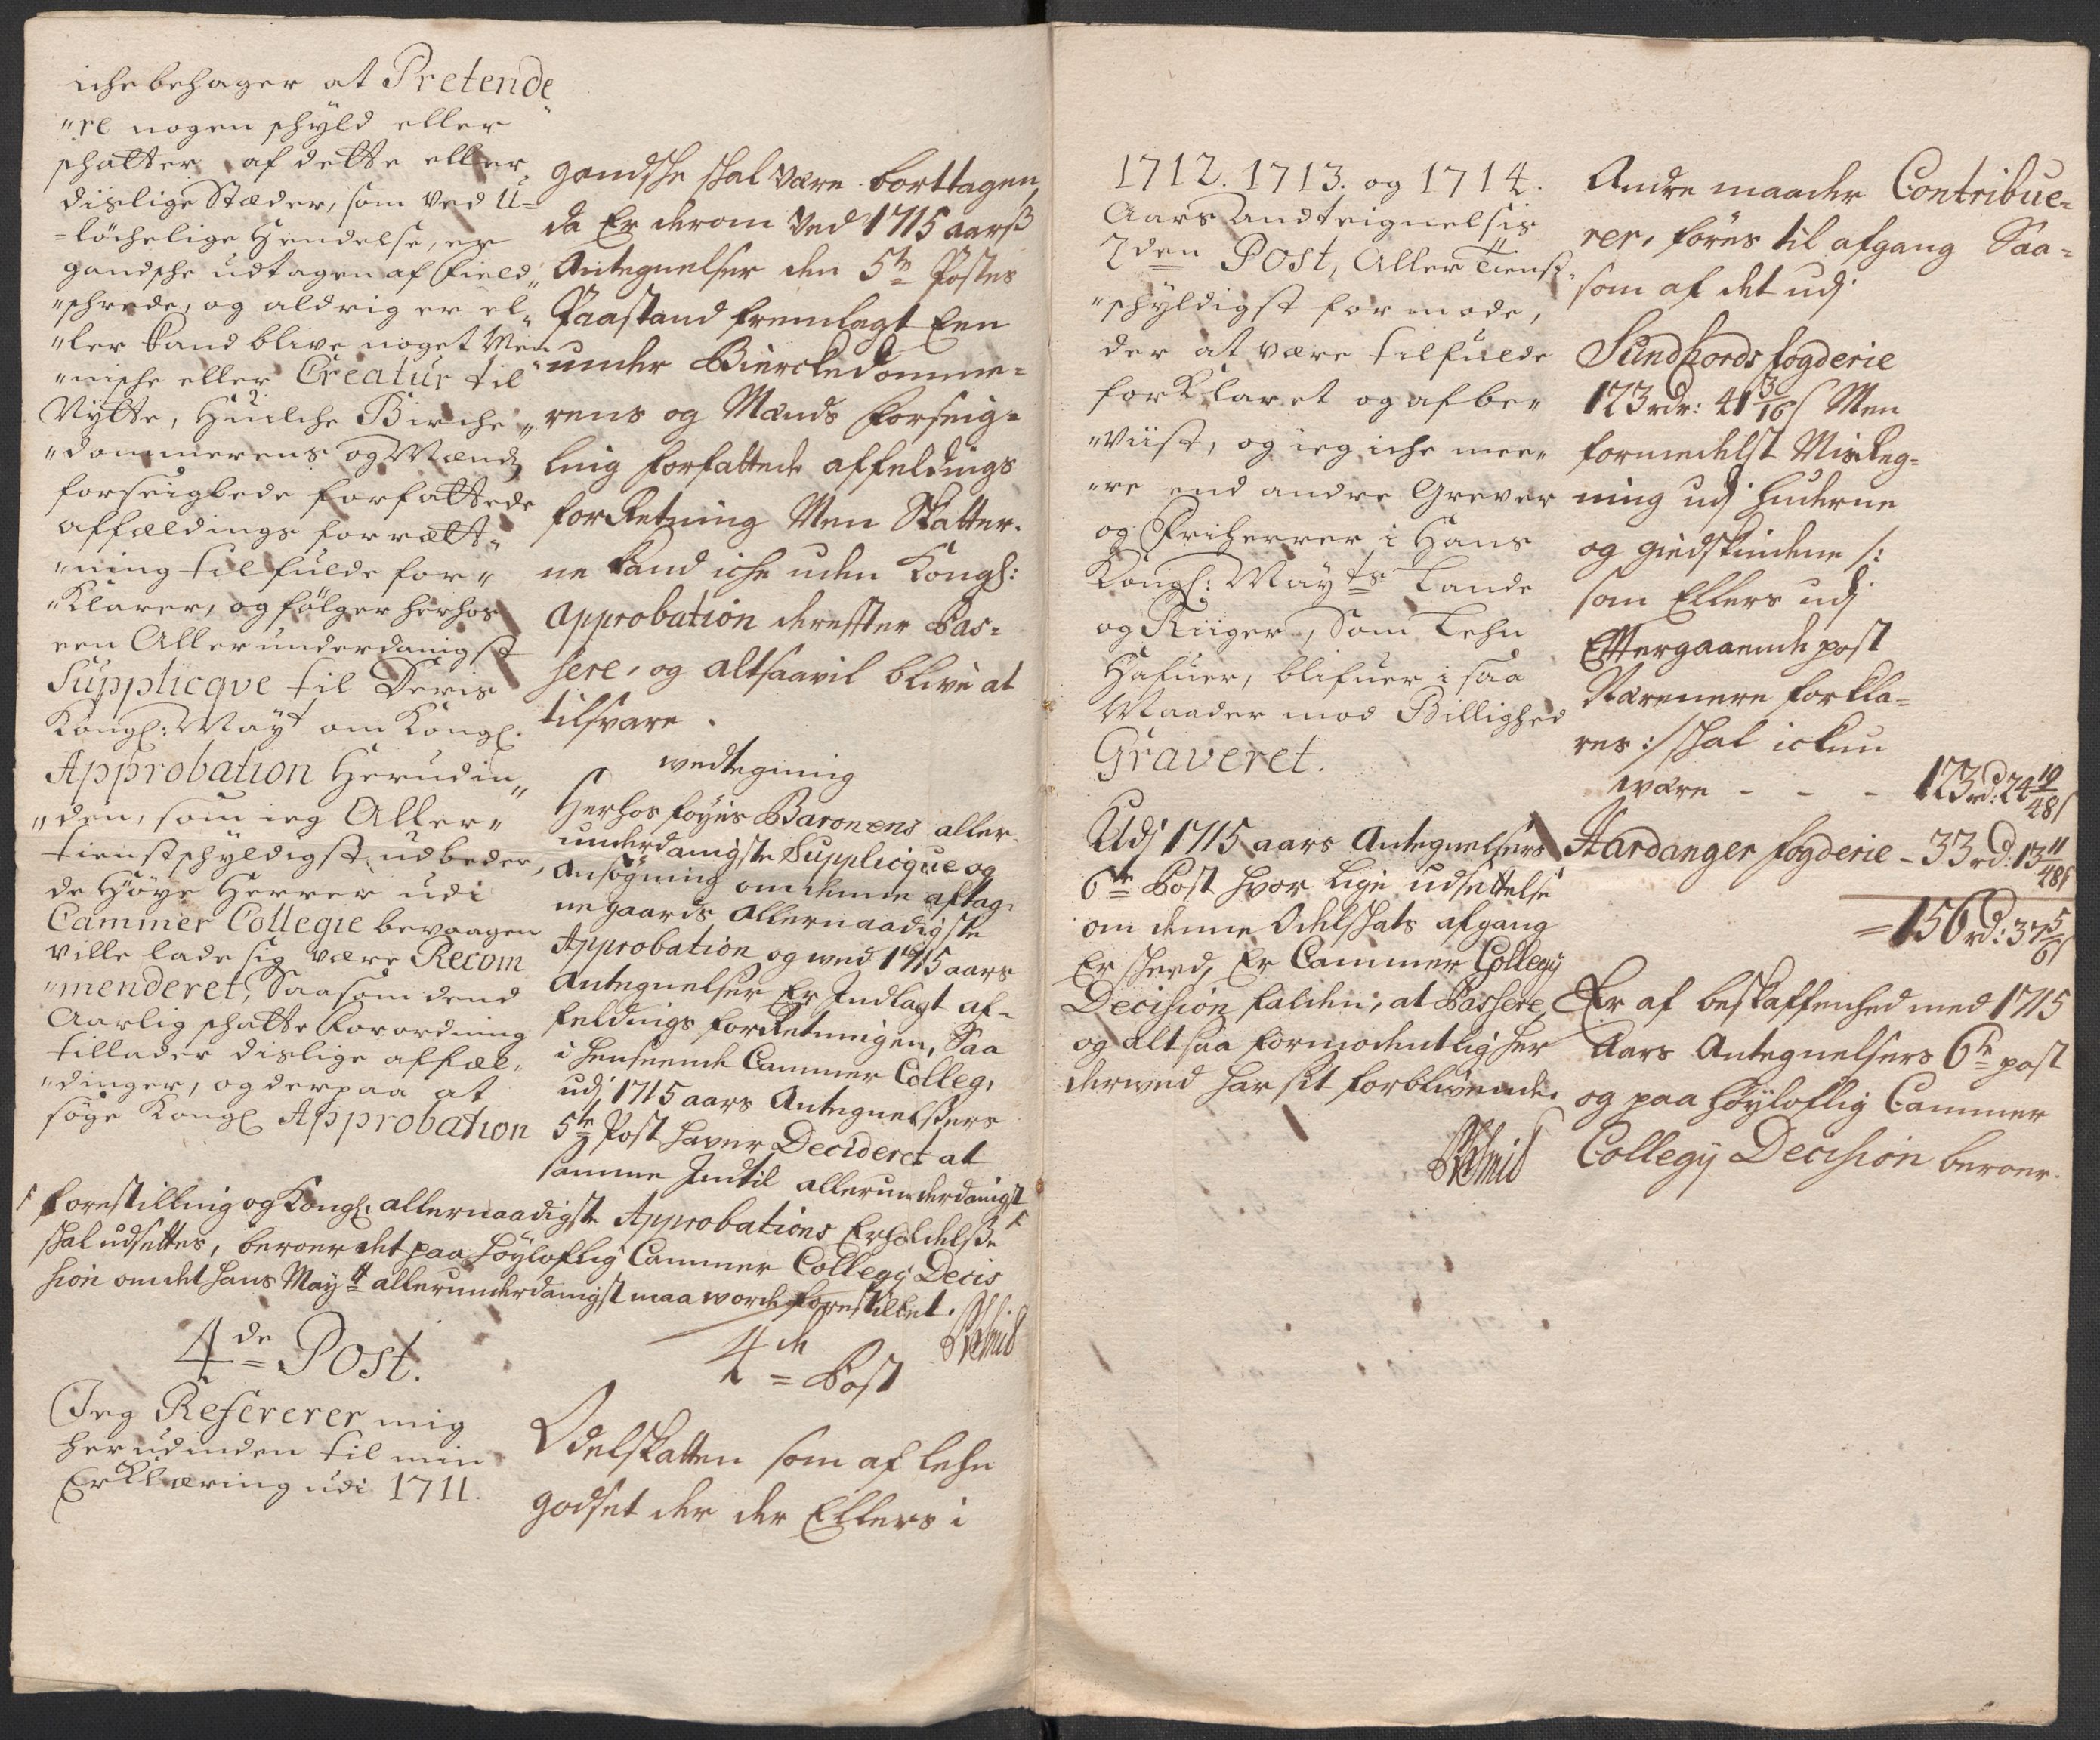 iche behager at Pretende
"re nogen schyld eller
schatter af dette eller
dislige Stæder, som ved U=
=löchelige Hendelse, er
gandsche udtagen af Field„
"schrede, og aldrig er el„
"ler kand blive noget Men
"nische eller Creatur til
Nytte, Huilche Birche„
"dommerens og Mænds
forseiglede forfattede
affældings forrætt„
"ning til fulde for„
"Klarer, og følger herhos
een Allerunderdanigst
Supplicqve til Deris
Kongl: Mayt om Kongl:
Approbation Herudin„
"den, som ieg Aller„
tienstschyldigst udbeder,
de Høye Herrer udi
Cammer Collegie bevaagen
ville lade sig være Recom
"menderet, Saasom dend
Aarlig schatte Forordning
tillader dislige affæl„
"dinger, og derpaa at
søge Kongl Approbation
gandsche skal være borttagen,
da Er derom ved 1715 aarß
Antegnelser den 5te Postes
Paastand fremlagt Een
under Birckedomme=
rens og Mænds forseig=
ling forfattede affeldings
forRetning Men Skatter=
ne kand iche uden Kongl:
approbation derefter Pas=
sere, og altsaavil blive at
tilsvare.
wedtegning
Herhos føyes Baronens aller
underdanigste Supplicque og
ansøgning om denne aftag=
ne gaards allernaadigste
Approbation og wed 1715 aars
Antegnelser Er Indlagt af=
feldings forRetningen, Saa
i henseende Cammer Colleg,
udj 1715 aars Antegnelsers
5te Post haver Decideret at
samme Indtil allerunderdanigst
forestilling og Kongl: allernaadigste Approbations Erholdelße
skal udsettes, beroer det paa höyloflig Cammer Collegij Decis
sion om det hans Maytt allerunderdanigst maa worde forestillet.
4de Post.
Jeg Refererer mig
herudinden til min
Erklæring udi 1711.
4de Post
Odelskatten som af lehn
godset der der Ellers i
1712. 1713. og 1714.
Aars Andteignelsis
7den Post, Aller Tienst„
"schyldigst formode,
der at være tilfulde
forKlaret og afbe„
"viist, og ieg iche mee„
"re end andre Grever
og Friherrer i Hans
Kongl: Mayts Lande
og Riiger, Som Lehn
Hafuer, blifuer i saa
Maader mod Billighed
Graveret.
Udj 1715 aars Antegnelsers
6te Post hvor lige udsettelse
om denne Odelskats afgang
Er skeed, Er Cammer Collegij
Decision falden, at Passere,
og altsaa formodentlig her
derwed har sit forblivende.
Andre maader Contribue=
rer, føres til afgang Saa=
som af det udj
Sundhords fogderie
123 rdr: 41 3/16 s Men
formedelst MisReg=
ning udj huderne
og giedskindene /:
som Ellers udj
Effterganende post
Nærmere forkla=
res :/ skal ickun
være - - - 123 rd: 24 19/48 s
Hardanger fogderie - 33 rd: 13 11/48 s
= 156 rd: 37 5/6 s
Er af beskaffenhed med 1715
Aars Antegnelsers 6te post
og paa höyloflig Cammer
Collegij Decision beroer.